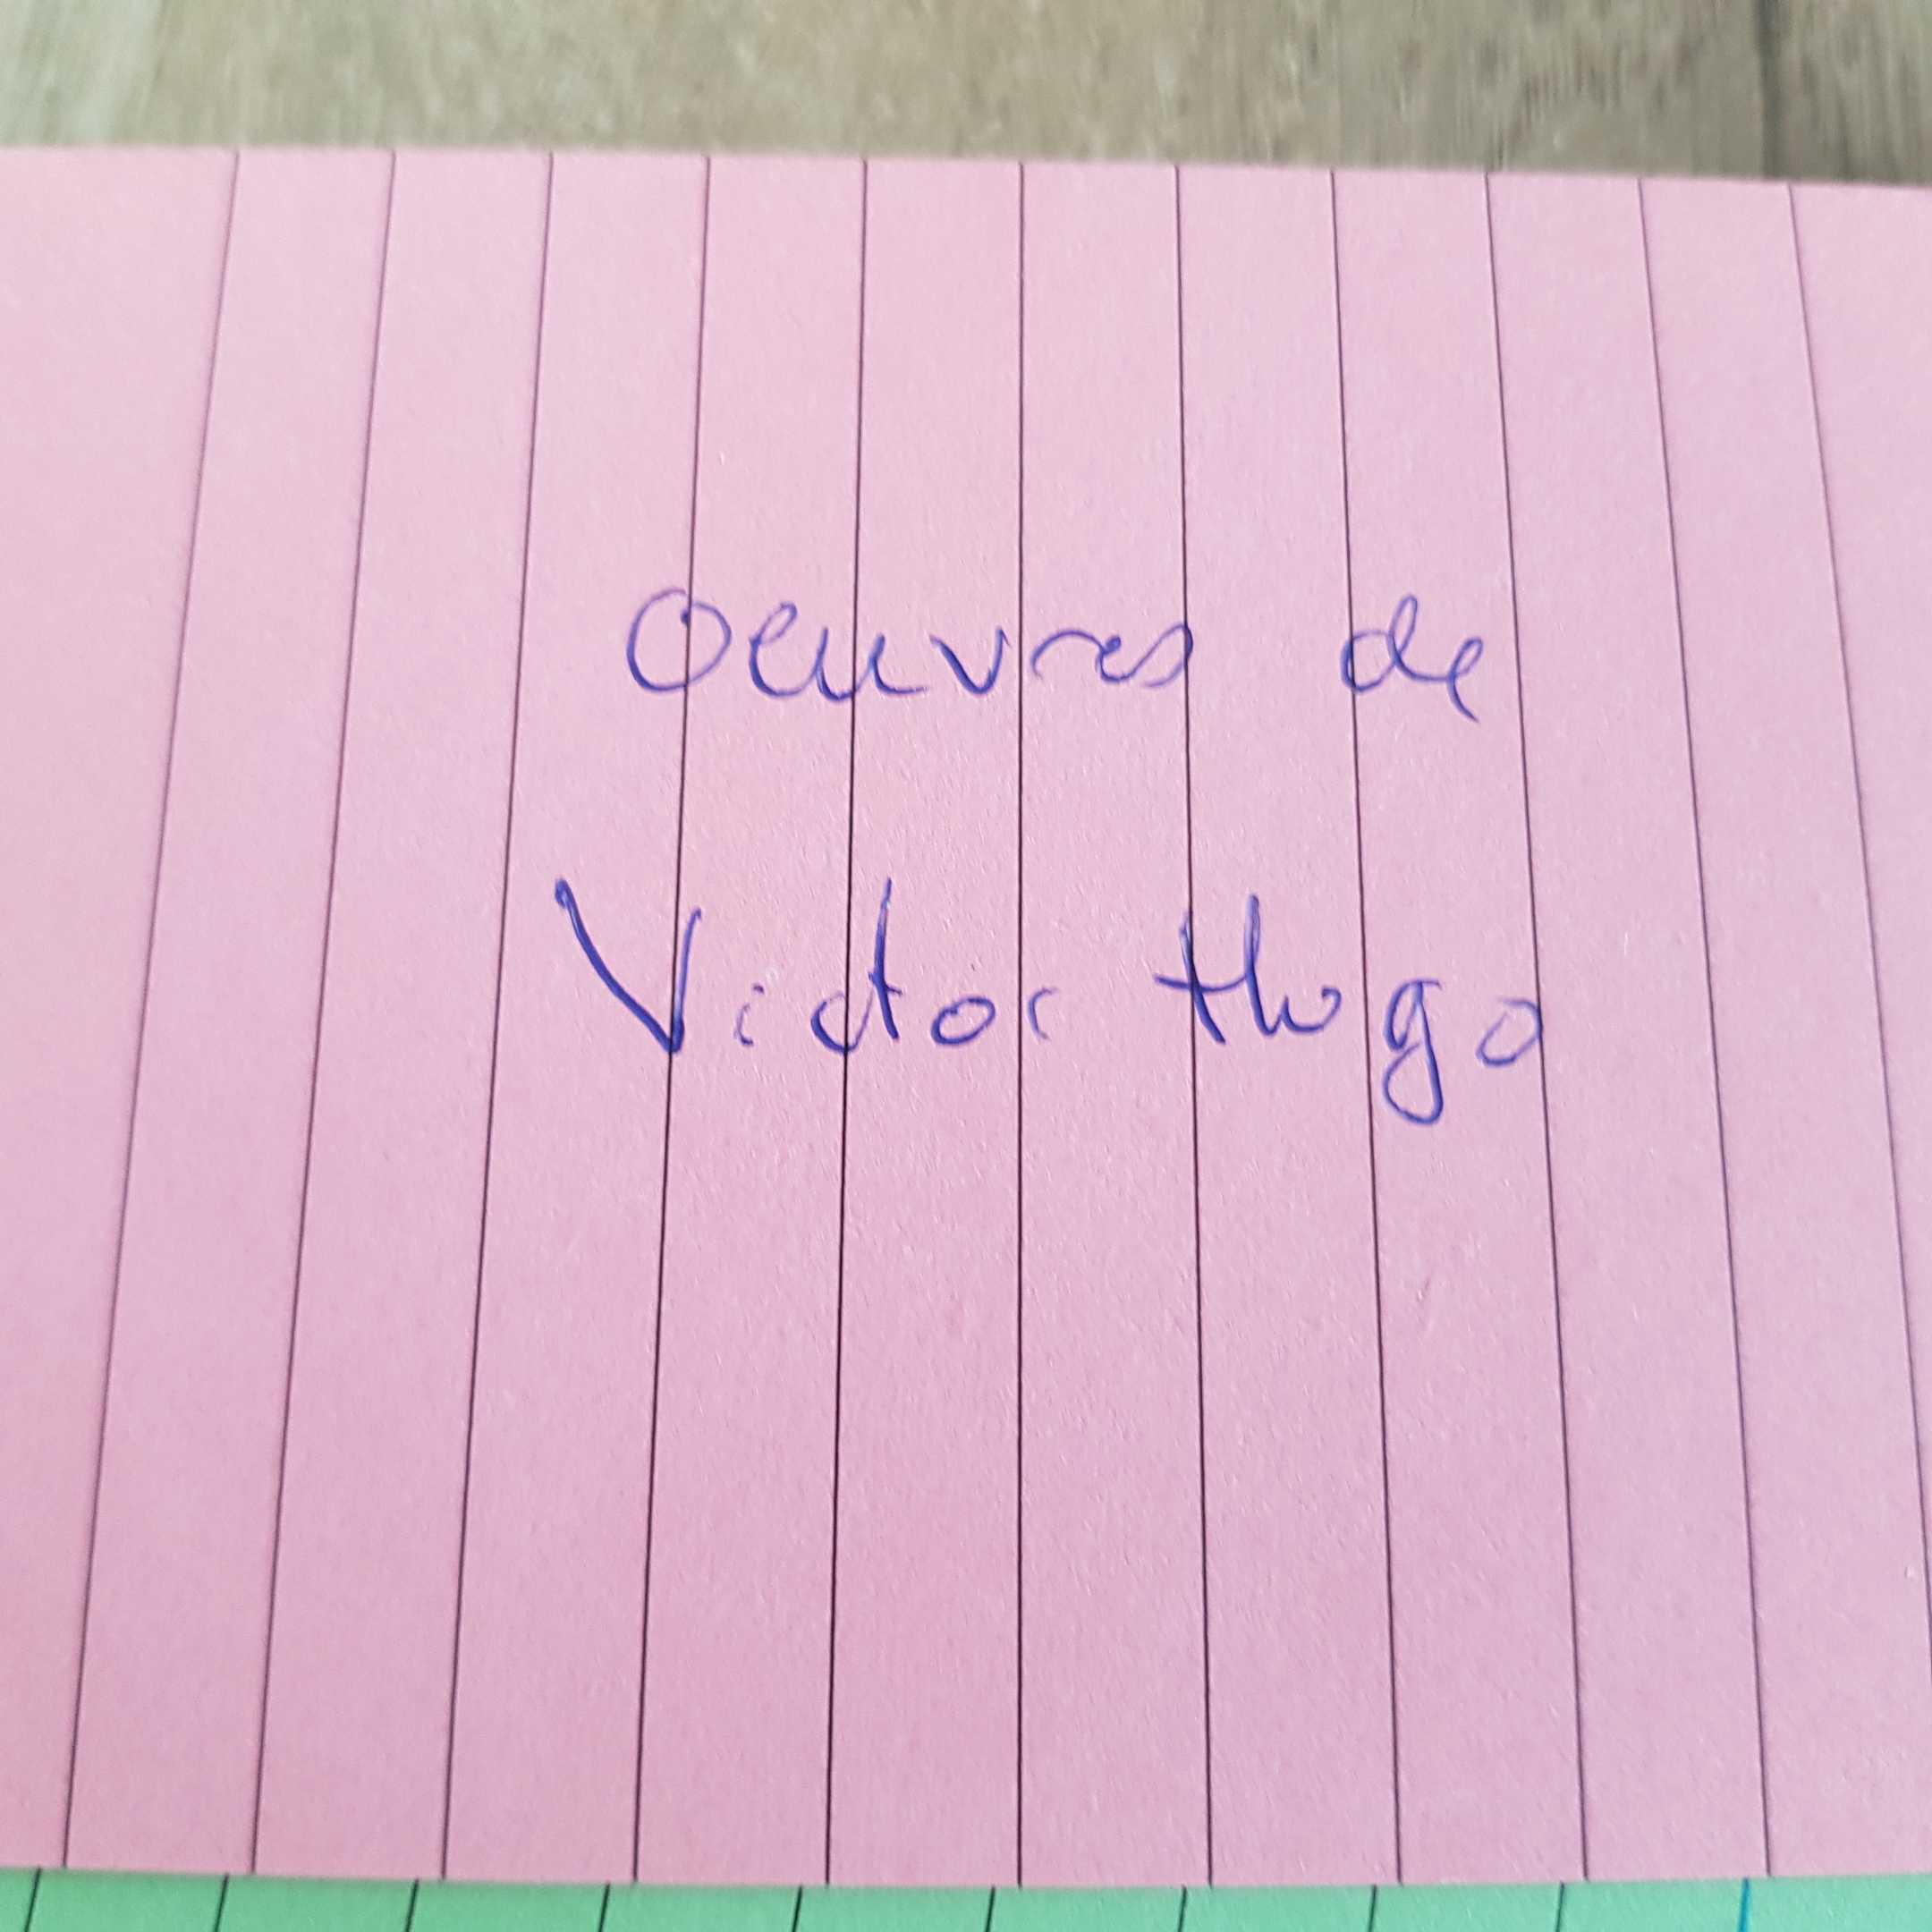 Oeuvres de
Victor Hugo